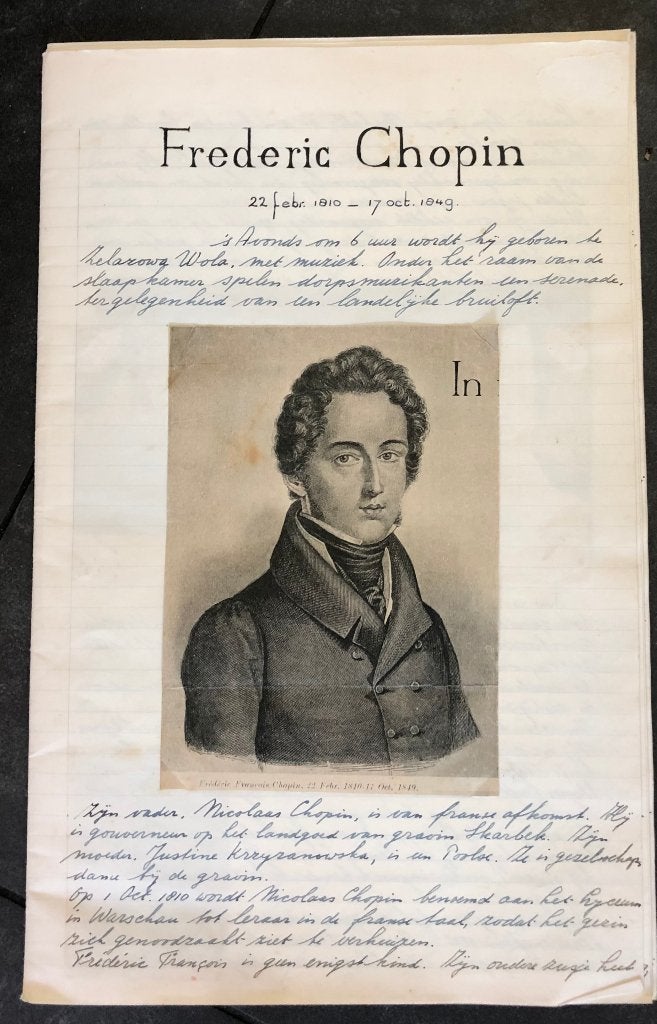 Frederic Chopin
22 febr. 1810 – 17 oct. 1849.
's Avonds om 6 uur wordt hij geboren te
Zelazowa Wola, met muziek. Onder het raam van de
slaapkamer spelen dorpsmuzikanten een serenade,
ter gelegenheid van een landelijke bruiloft.
In
Frédéric François Chopin, 22 Febr. 1810-17 Oct. 1849.
Zijn vader, Nicolaas Chopin, is van franse afkomst. Hij
is gouverneur op het landgoed van gravin Skarbek. Zijn
moeder, Justine Krzyzanowska, is een Poolse. Ze is gezelschaps
dame bij de gravin.
Op 1 Oct. 1810 wordt Nicolaas Chopin benoemd aan het Lyceum
in Warschau tot leraar in de franse taal, zodat het gezin
zich genoodzaakt ziet te verhuizen.
Frédéric François is geen enigst kind. Zijn oudere zusje heet